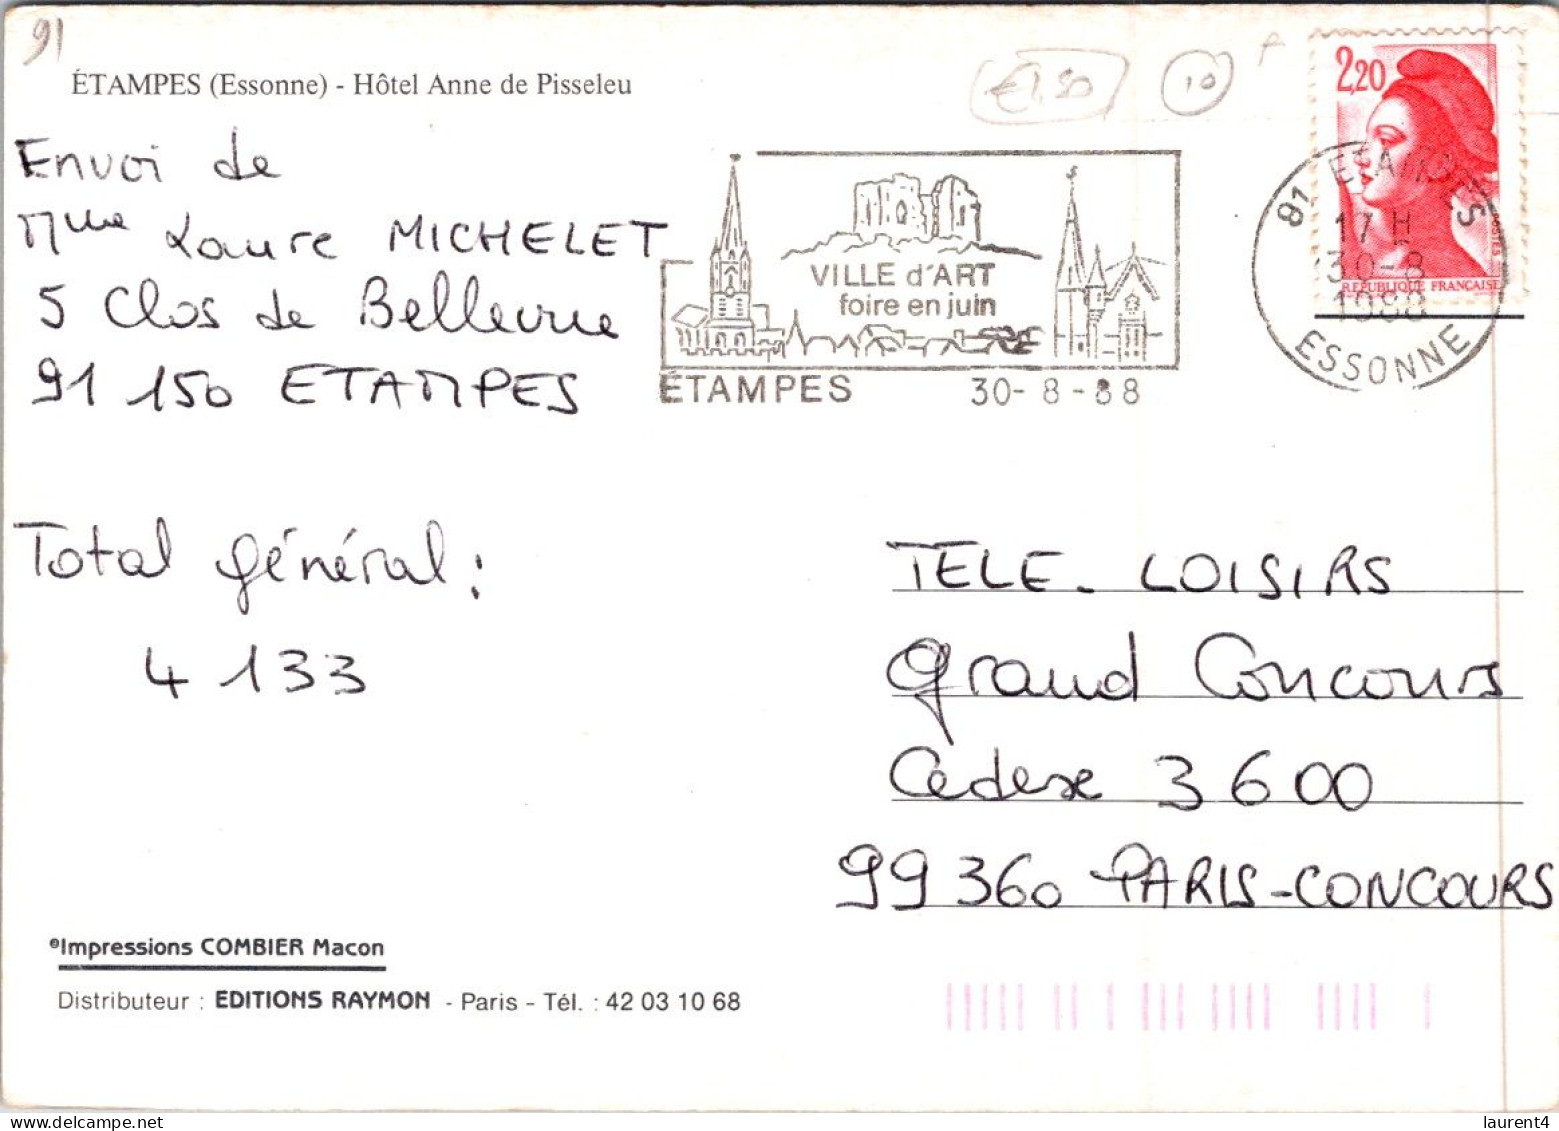 91
ÉTAMPES (Essonne) - Hôtel Anne de Pisseleu
€1,50
10
2,20
Envoi de
Mme Laure MICHELET
5 Clos de Bellevue
91 150 ETAMPES
VILLE d'ART
foire en juin
ÉTAMPES 30-8-88
91 ETAMPES
17 H
30-8
1988
ESSONNE
POSTES
REPUBLIQUE FRANÇAISE
Total général :
4 133
TELE-LOISIRS
Grand Concours
Cedexe 3600
99360 PARIS-CONCOURS
©Impressions COMBIER Macon
Distributeur : EDITIONS RAYMON - Paris - Tél. : 42 03 10 68
laurent4